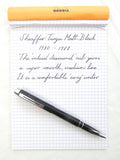 RHODIA
Sheaffer Targa Matt Black
1980 - 1988
The inlaid diamond, nib gives
a super smooth, medium line
It is a comfortable